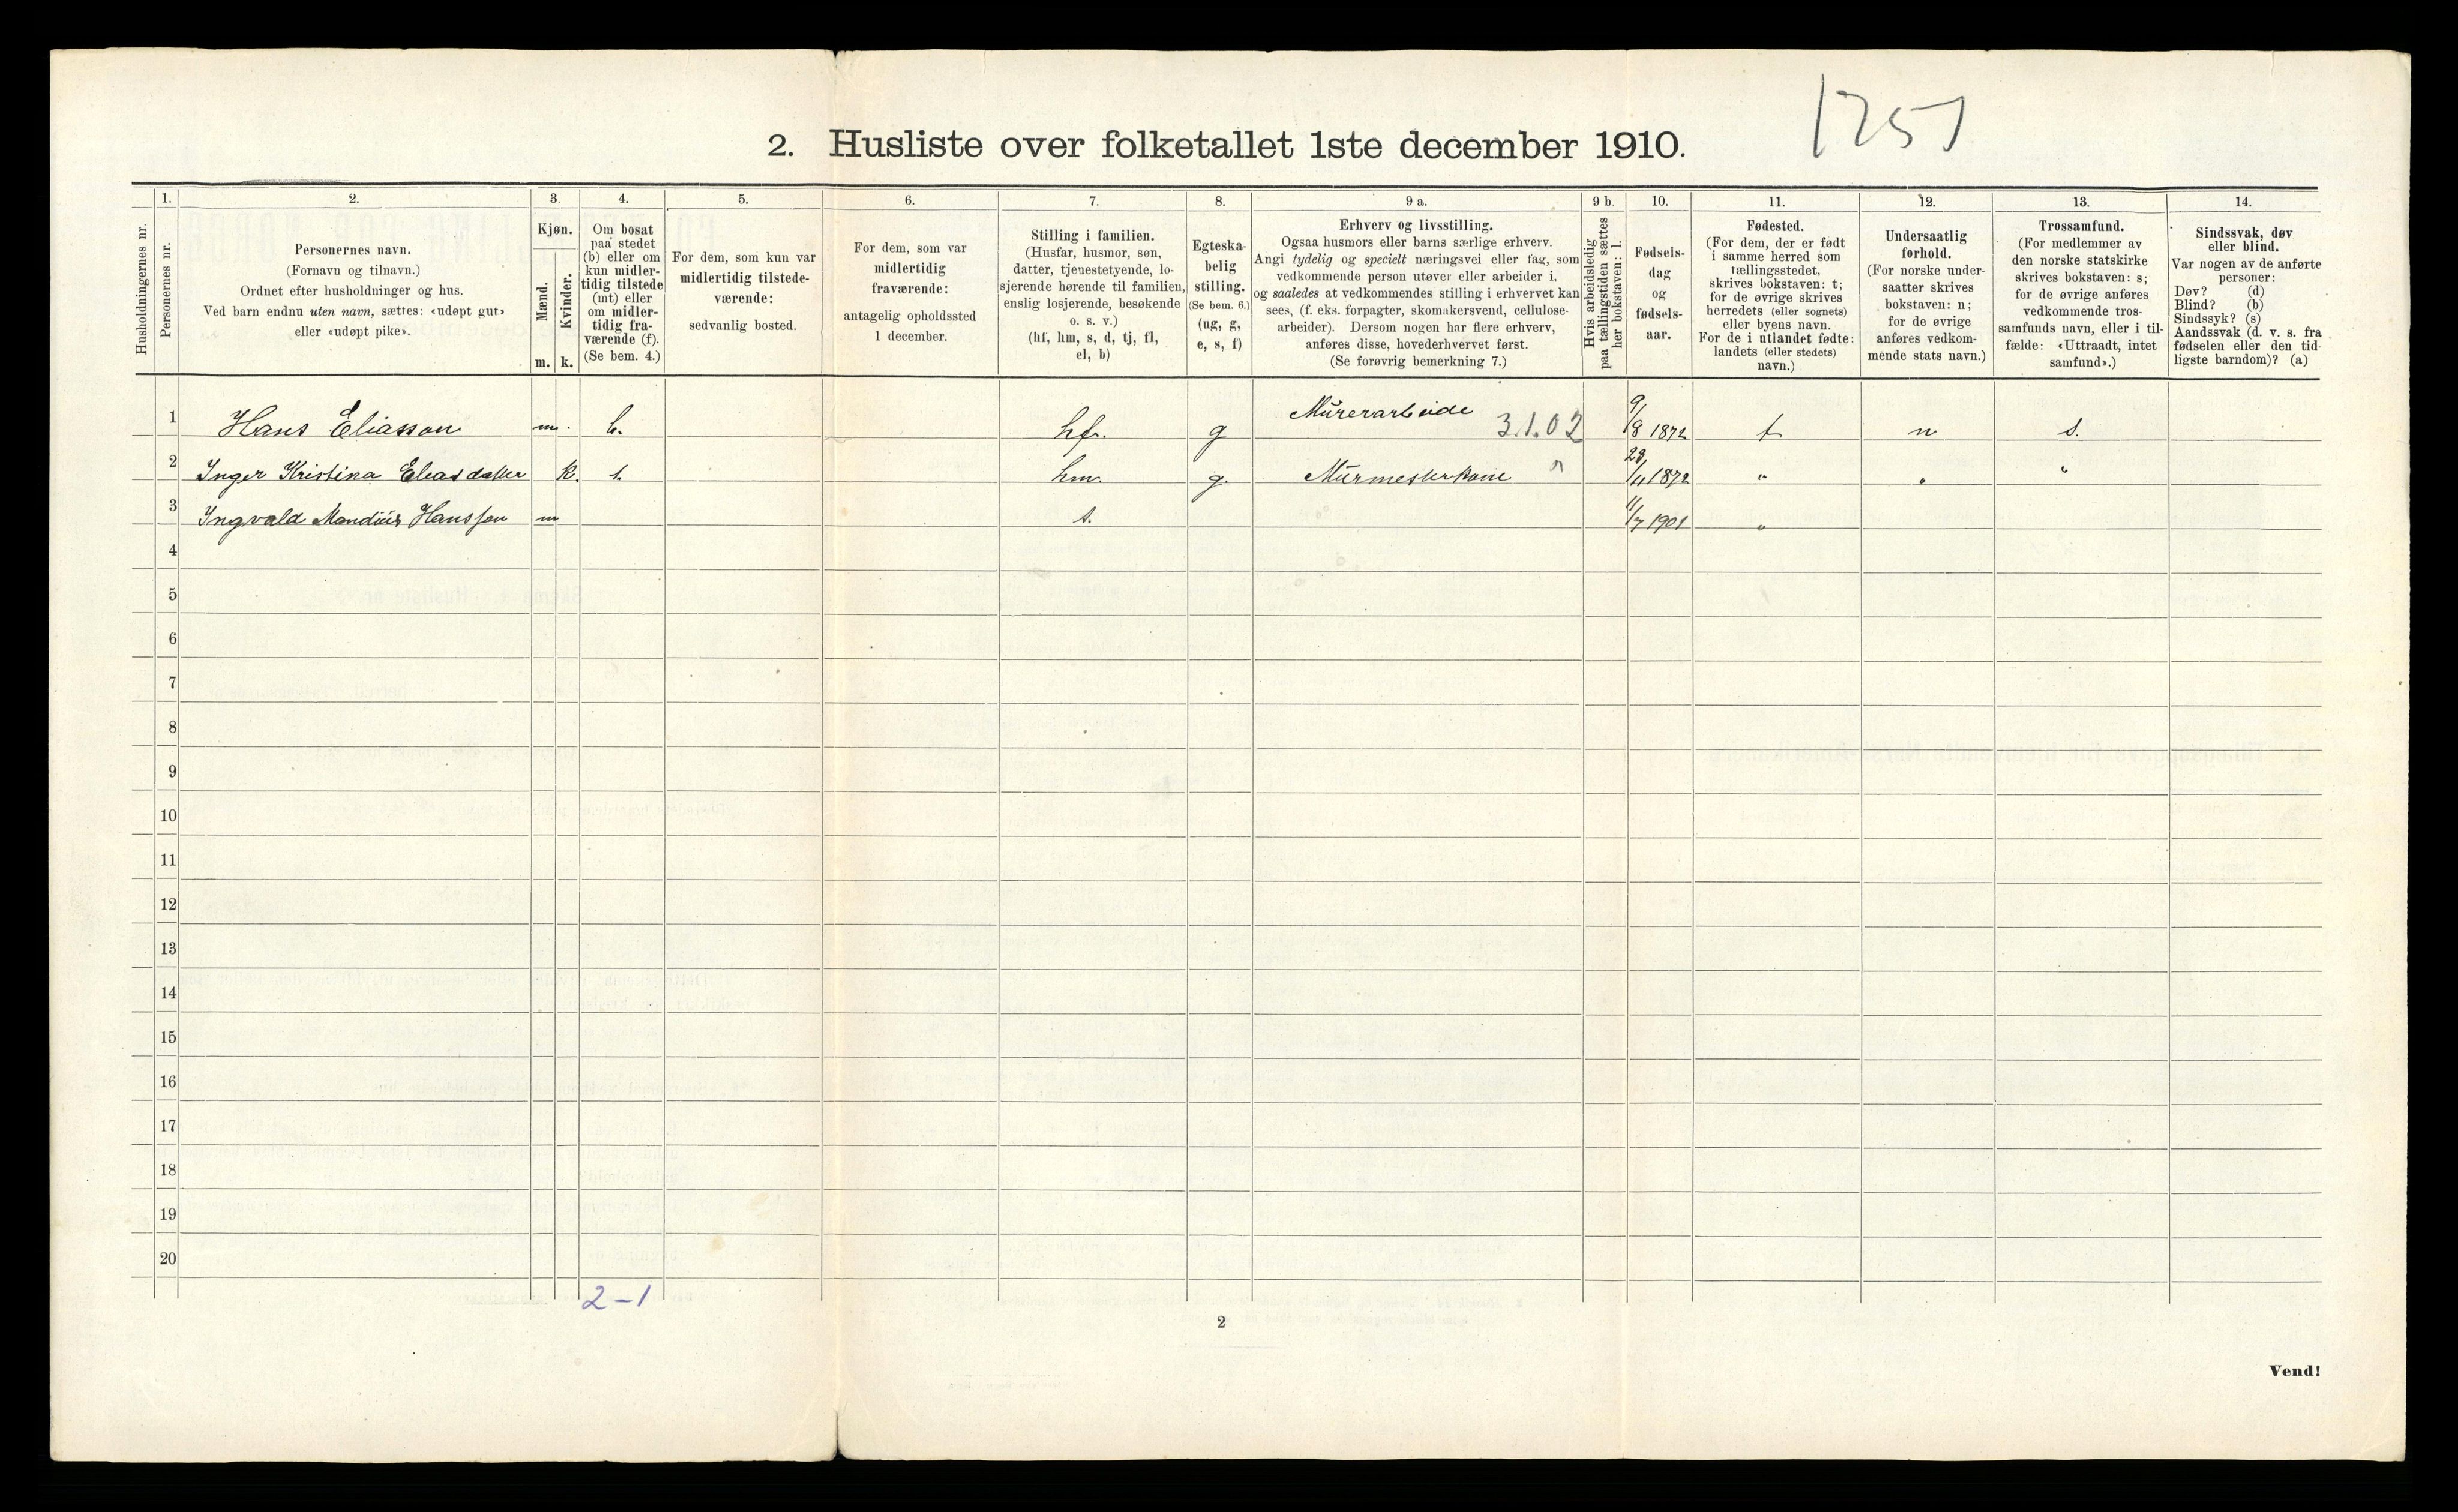 1251
2. Husliste over folketallet 1ste december 1910.
Husholdningernes nr.
1.
Personernes nr.
2.
Personernes navn.
(Fornavn og tilnavn.)
Ordnet efter husholdninger og hus.
Ved barn endnu uten navn, sættes: «udøpt gut»
eller «udøpt pike».
3.
Kjøn.
Mænd.
Kvinder.
m. k.
4.
Om bosat
paa stedet
(b) eller om
kun midler-
tidig tilstede
(mt) eller
om midler-
tidig fra-
værende (f).
(Se bem. 4.)
5.
For dem, som kun var
midlertidig tilstede-
værende:
sedvanlig bosted.
6.
For dem, som var
midlertidig
fraværende:
antagelig opholdssted
1 december.
7.
Stilling i familien.
(Husfar, husmor, søn,
datter, tjenestetyende, lo-
sjerende hørende til familien,
enslig losjerende, besøkende
o. s. v.)
(hf, hm, s, d, tj, fl,
el, b)
8.
Egteska-
belig
stilling.
(Se bem. 6.)
(ug, g,
e, s, f)
9 a.
Erhverv og livsstilling.
Ogsaa husmors eller barns særlige erhverv.
Angi tydelig og specielt næringsvei eller fag, som
vedkommende person utøver eller arbeider i,
og saaledes at vedkommendes stilling i erhvervet kan
sees, (f. eks. forpagter, skomakersvend, cellulose-
arbeider). Dersom nogen har flere erhverv,
anføres disse, hovederhvervet først.
(Se forøvrig bemerkning 7.)
9 b.
Hvis arbeidsledig
paa tællingstiden sættes
her bokstaven: l.
10.
Fødsels-
dag
og
fødsels-
aar.
11.
Fødested.
(For dem, der er født
i samme herred som
tællingsstedet,
skrives bokstaven: t;
for de øvrige skrives
herredets (eller sognets)
eller byens navn.
For de i utlandet fødte:
landets (eller stedets)
navn.)
12.
Undersaatlig
forhold.
(For norske under-
saatter skrives
bokstaven: n;
for de øvrige
anføres vedkom-
mende stats navn.)
13.
Trossamfund.
(For medlemmer av
den norske statskirke
skrives bokstaven: s;
for de øvrige anføres
vedkommende tros-
samfunds navn, eller i til-
fælde: «Uttraadt, intet
samfund».)
14.
Sindssvak, døv
eller blind.
Var nogen av de anførte
personer:
Døv? (d)
Blind? (b)
Sindssyk? (s)
Aandssvak (d. v. s. fra
fødselen eller den tid-
ligste barndom)? (a)
1 Hans Eliasson m. b. hfr. g Mürerarbeide 3.1.02 9/8 1872 t n s.
2 Inger Kristina Eliasdatter k. hm. g. Mürmesterkone " " "
3 Ingvald Mandiüs Hansson m s. 11/7 1901 "
4
5
6
7
8
9
10
11
12
13
14
15
16
17
18
19
20
2-1
2
Vend!